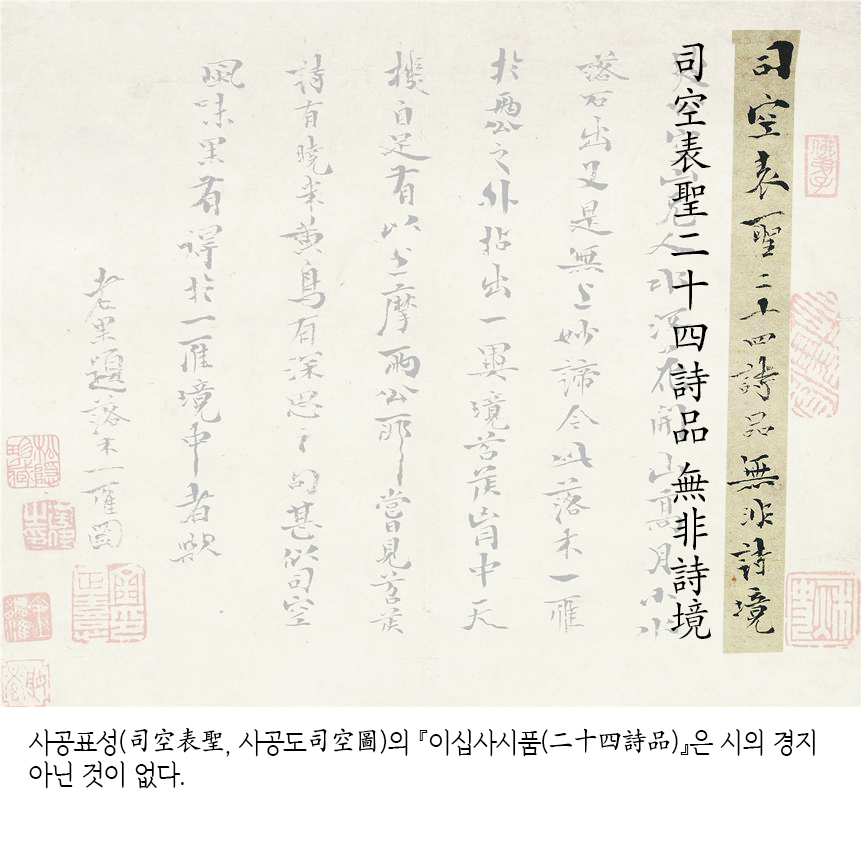 司空表聖二十四詩品無非詩境
司空表聖二十四詩品 無非詩境
空山無人水流花開山高月小水
落石出又是無上妙諦今此落木一雁
於兩公之外拈出一異境苔矦胷中天
機自足有以上摩兩公耶嘗見苔矦
詩有曉來黃鳥有深思之句甚似司空
風味果有得於一雁境中者歟
老果題落木一雁圖
사공표성(司空表聖, 사공도司空圖)의 『이십사시품(二十四詩品)』은 시의 경지
아닌 것이 없다.